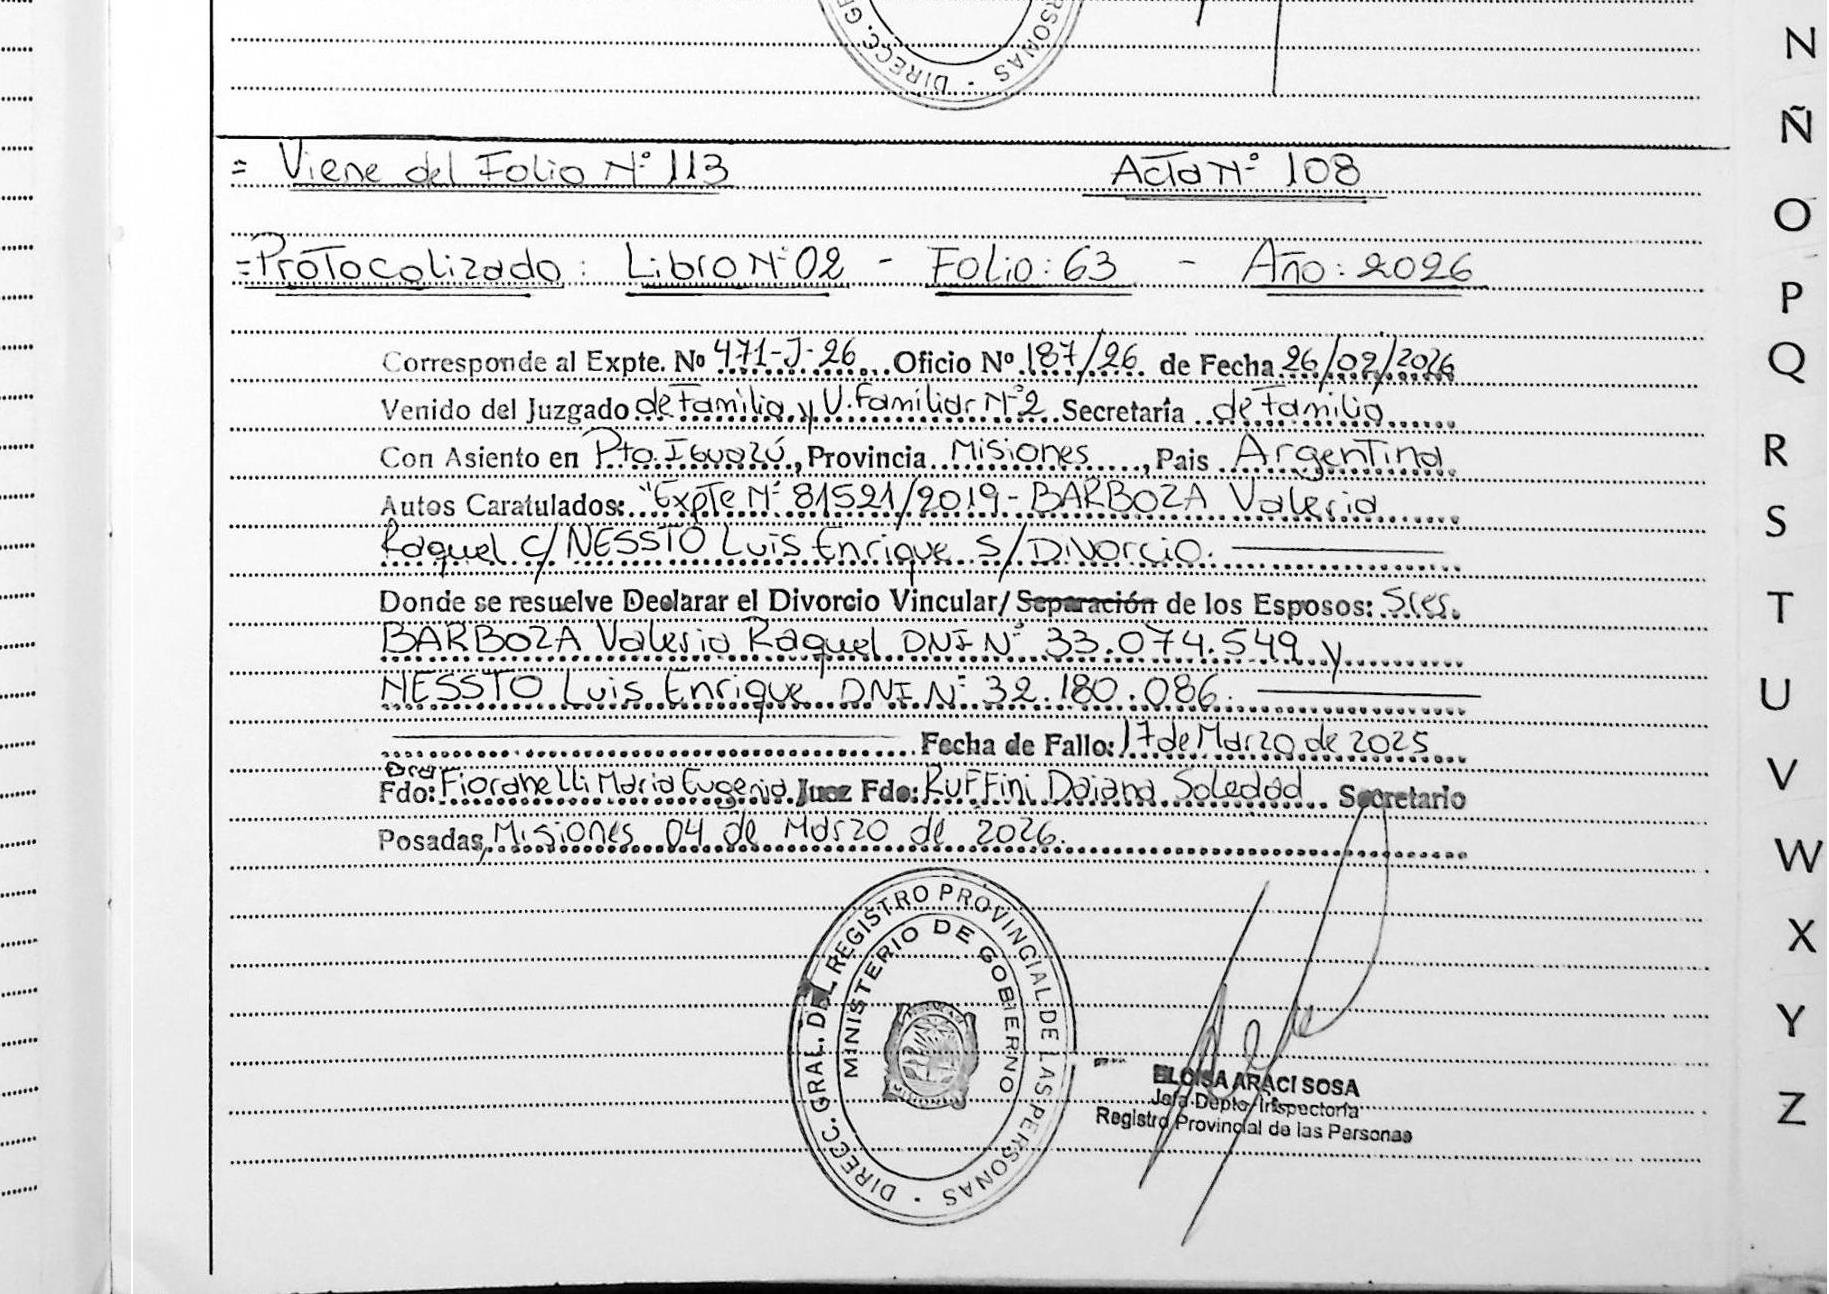 DIRECC. GR
PERSONAS
= Viene del Folio Nº 113 Acta Nº 108
= Protocolizado: Libro Nº 02 - Folio: 63 - Año: 2026
Corresponde al Expte. Nº 471-J-26 Oficio Nº 187/26 de Fecha 26/02/2026
Venido del Juzgado de Familia y V. Familiar Nº 2 Secretaría de Familia
Con Asiento en Pto. Iguazú, Provincia Misiones, Pais Argentina
Autos Caratulados: "Expte Nº 81521/2019- BARBOZA Valeria
Raquel c/ NESSTO Luis Enrique s/ Divorcio.
Donde se resuelve Declarar el Divorcio Vincular/ Separación de los Esposos: Sres.
BARBOZA Valeria Raquel DNI Nº 33.074.549 y
NESSTO Luis Enrique DNI Nº 32.180.086.
Fecha de Fallo: 17 de Marzo de 2025
Dra
Fdo: Fioranelli Maria Eugenia Juez Fdo: Ruffini Daiana Soledad Secretario
Posadas, Misiones 04 de Marzo de 2026.
DIRECC. GRAL. DEL REGISTRO PROVINCIAL DE LAS PERSONAS
MINISTERIO DE GOBIERNO
ELOISA ARACI SOSA
Jefa Depto. Inspectoria
Registro Provincial de las Personas
N
Ñ
O
P
Q
R
S
T
U
V
W
X
Y
Z